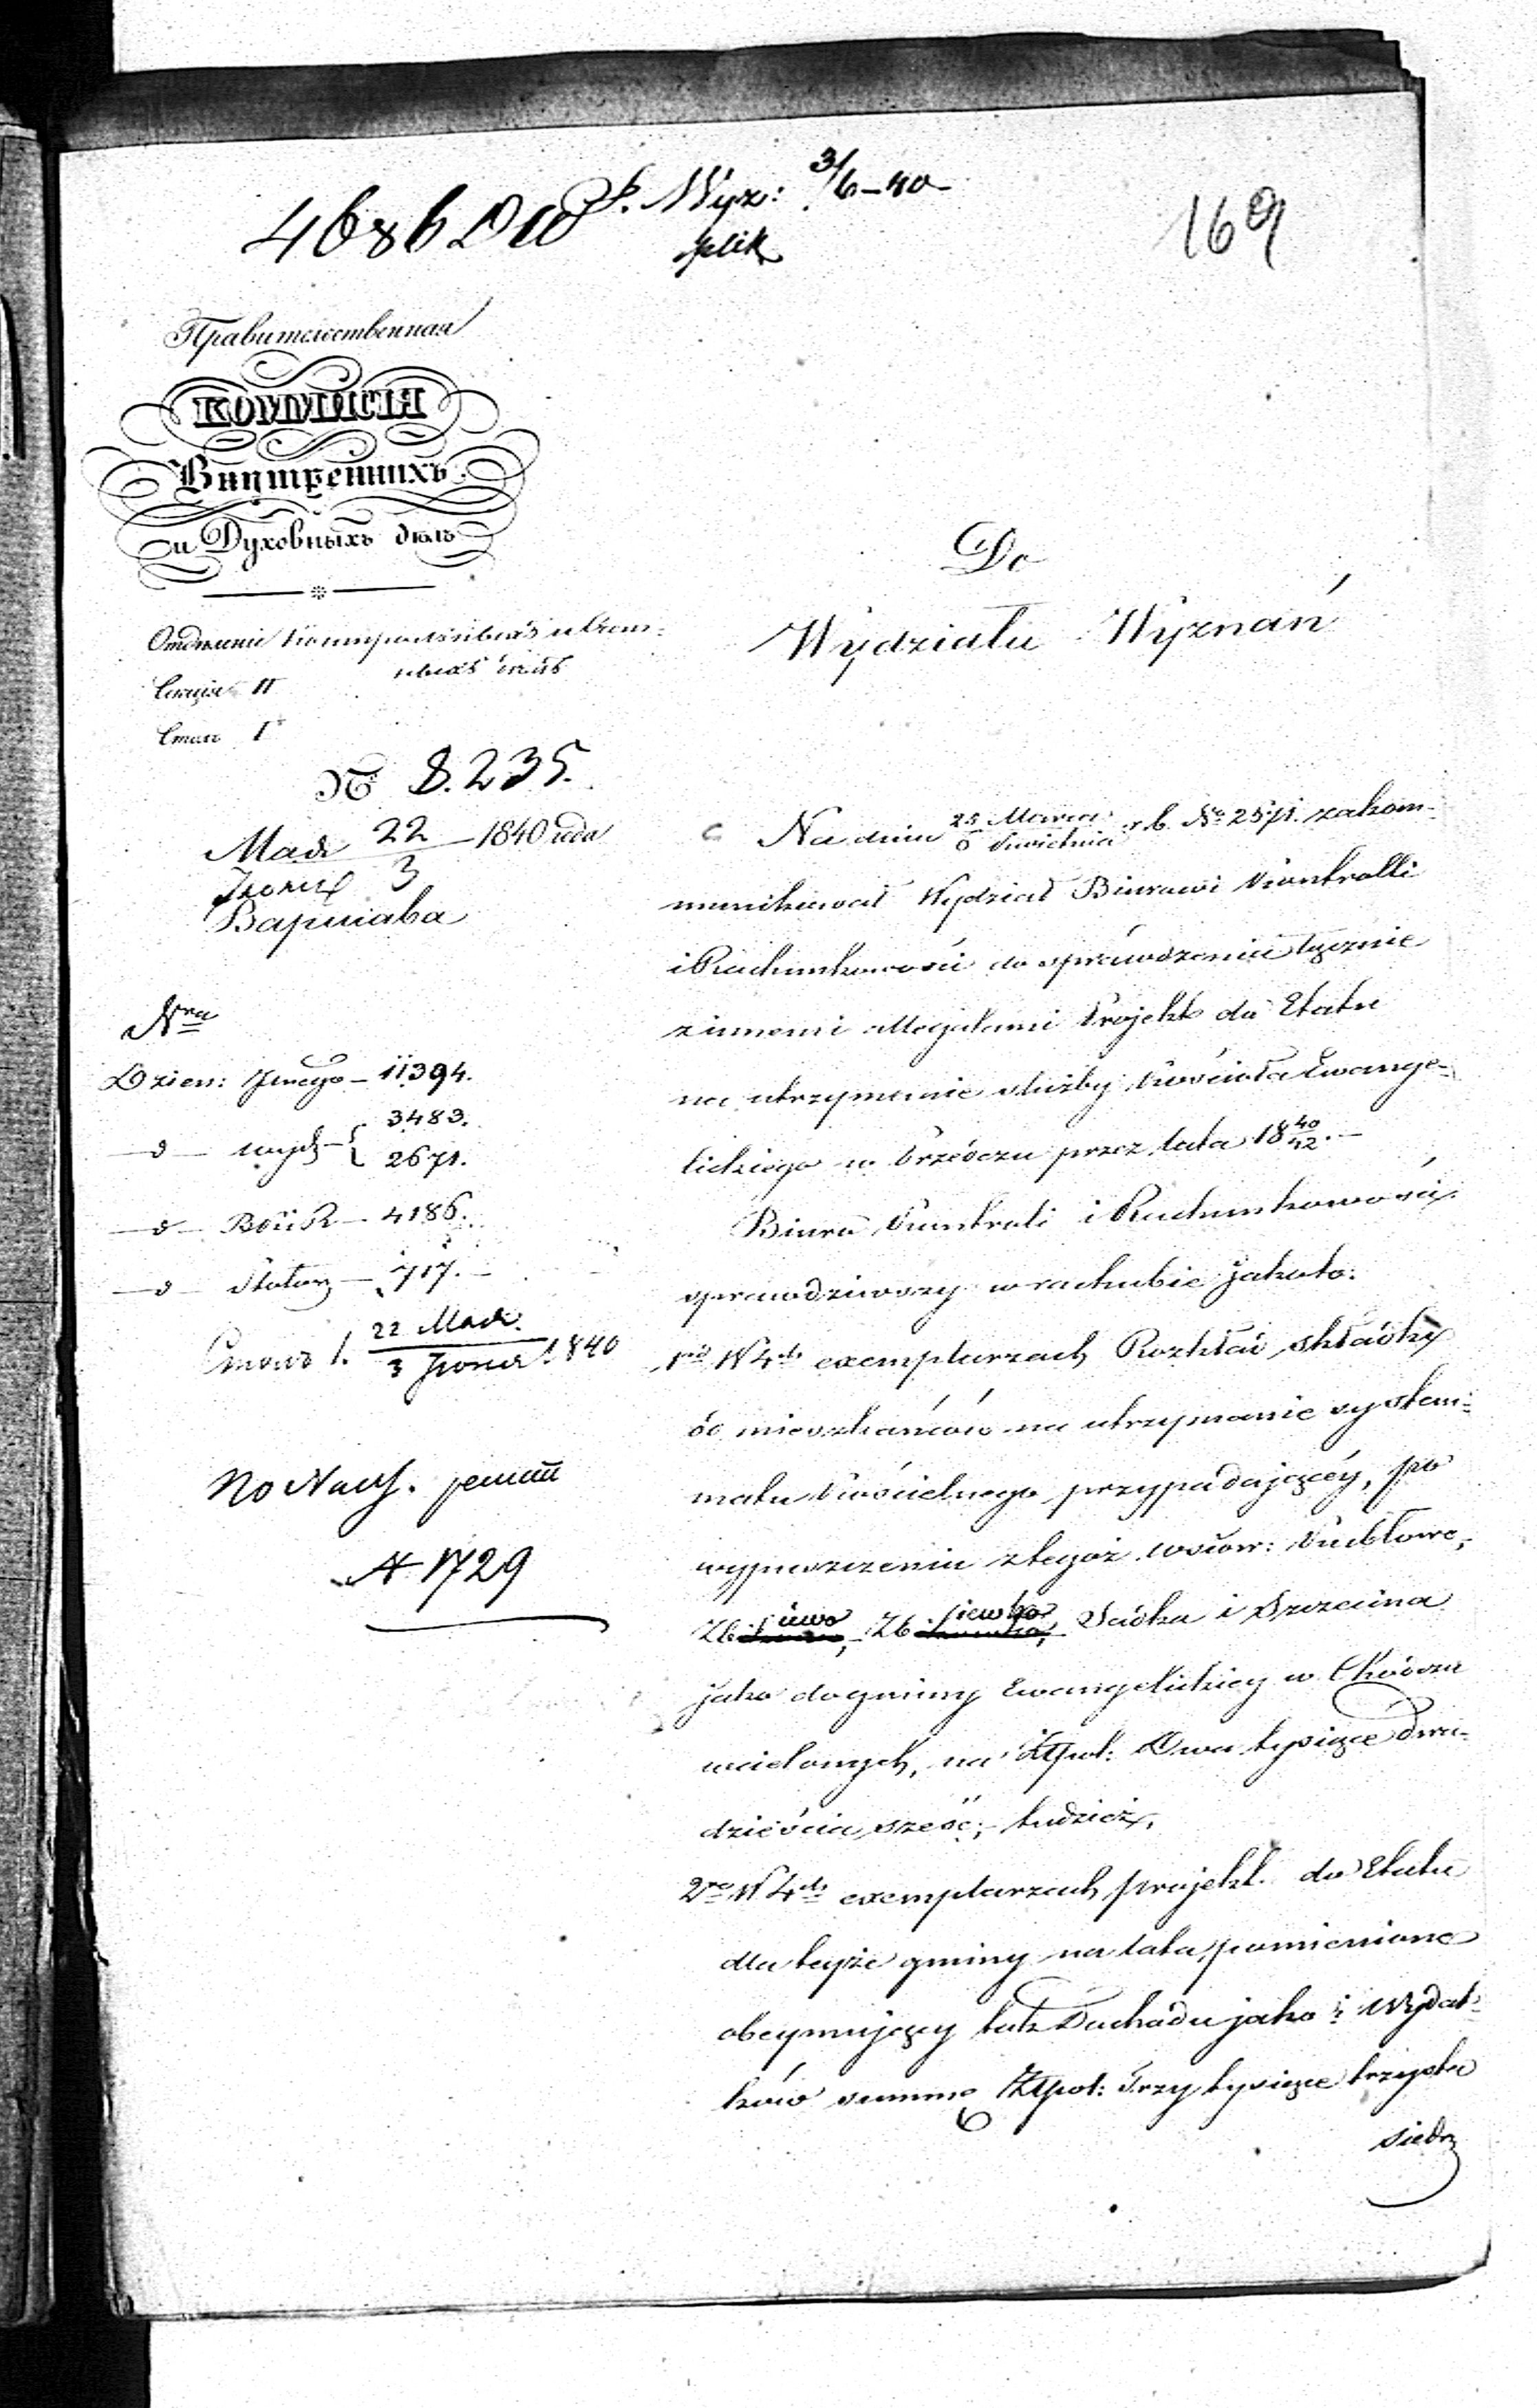 4686 DW
P. Wyz: 3/6–40
plik
169
Правительственная
КОММИСІЯ
Внутреннихъ
и Духовныхъ дѣлъ
Отделение Контрольныхъ и Счет-
ныхъ делъ
Секция II
Стол I
№ 8.235.
Мая 22 – 1840 года
Июня 3
Варшава
Do
Wydziału Wyznań
Nra
Dzien: – 11394.
–d– { 3483.
2671.
–d– BKiR – 4186.
–d– – 717. –
22 Мая
3 Июня 1840
No
N 1729
Na dniu 25 Marca / 6 Kwietnia r. b. No 2571. zakom-
munikował Wydział Biurowi Kontrolli
i Rachunkowości do sprawdzenia łącznie
z innemi allegatami Projekt do Etatu
na utrzymanie służby Kościoła Ewange-
lickiego w przez lata 18 40/42. –
Biuro Kontroli i Rachunkowości
sprawdziwszy w rachubie jakoto:
1mo W 4ch exemplarzach Rozkład składki
od mieszkańców na utrzymanie system-
matu Kościelnego przypadającéy, po
wypuszczeniu z tegoż wsiów:
i Szczecina
jako do gminy Ewangelickiey w
wcielonych, na Złpol: Dwa tysiące dwa-
dzieścia sześć; tudzież,
2do W 4ch exemplarzach projekt do Etatu
dla teyże gminy na lata pomienione
obeymujący tak Dochodu jako i Wydat-
ków summę Złpol: Trzy tysiące trzysta
siedm